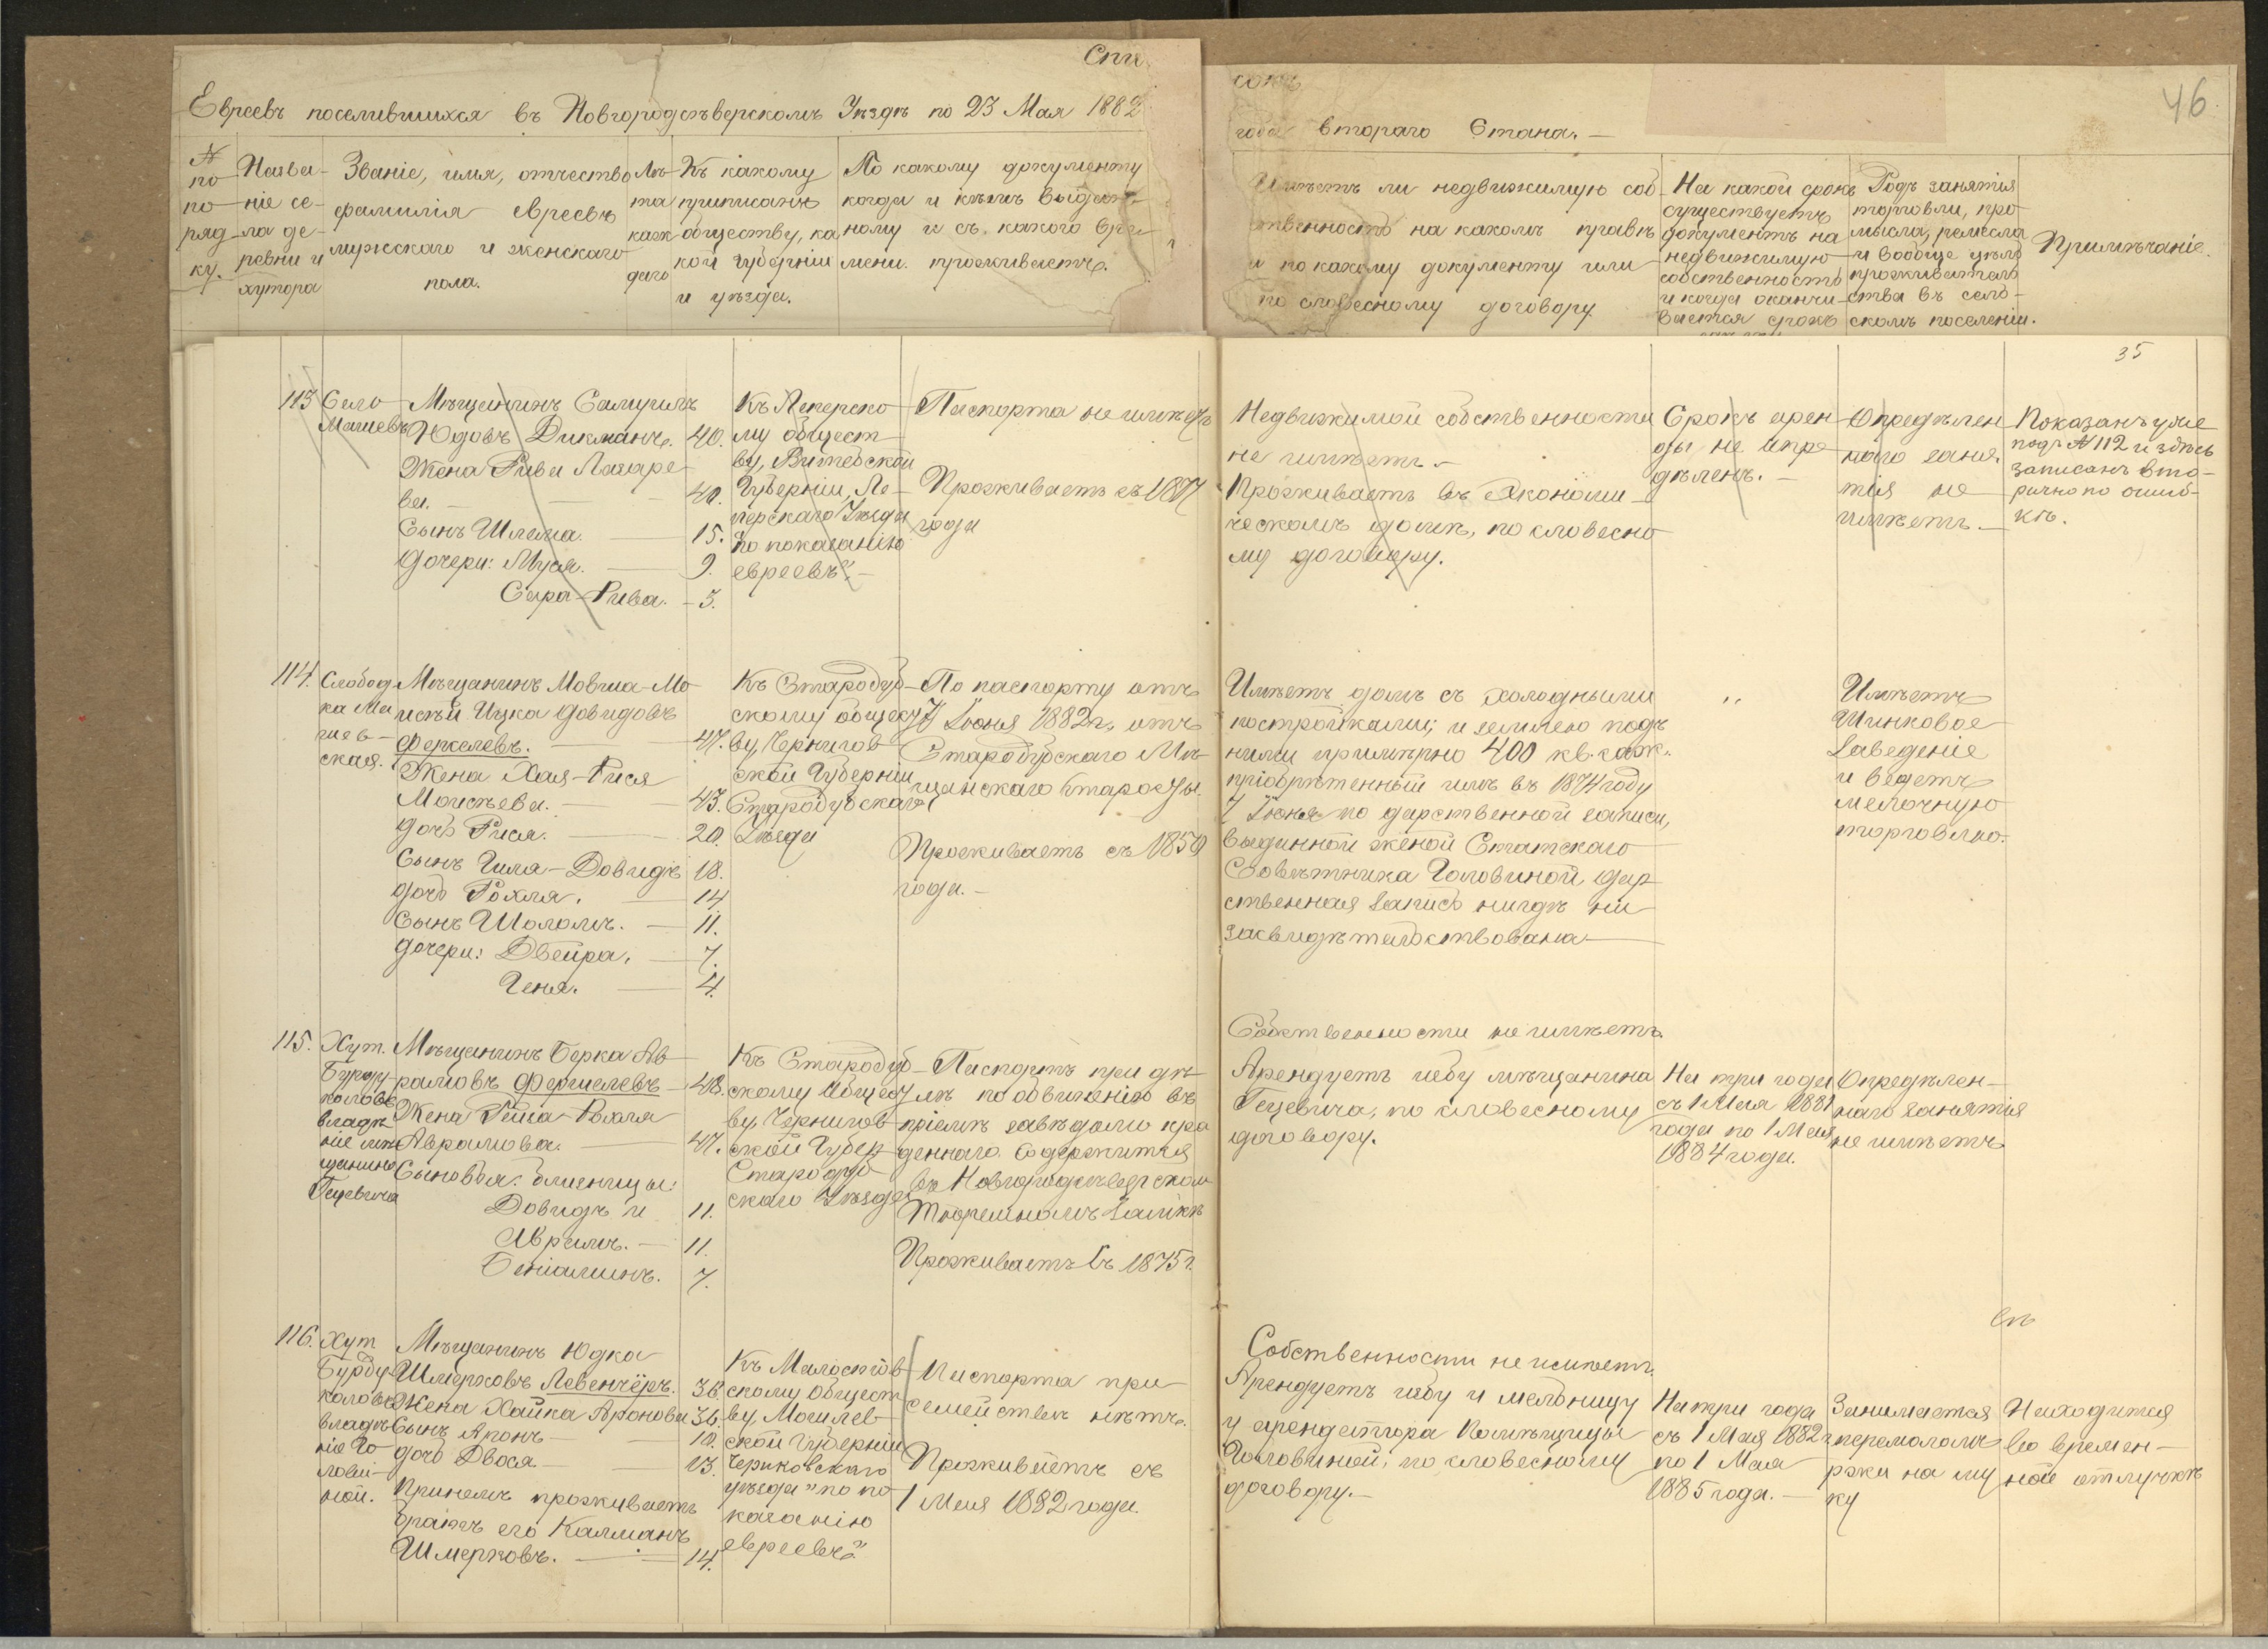 Спи
сокъ
46
Евреевъ поселившихся въ Новгородсѣверскомъ Уѣздѣ по 23 Мая 1882
года втораго Стана.
№
по
по
ряд
ку.
Назва-
ніе се-
ла де-
ревни и
хутора
Званіе, имя, отчество
фамилія евреевъ
мужскаго и женскаго
пола.
Лѣ-
та
каж
даго
Къ какому
приписанъ
обществу, ка
кой Губерніи
и уѣзда.
По какому документу
когда и кѣмъ выдан-
ному и съ какого вре-
мени проживаетъ.
Имѣетъ ли недвижимую соб-
ственность на какомъ правѣ
и по какому документу или
по словесному договору
На какой срокъ
существуетъ
документъ на
недвижимую
собственность
и когда оканчи-
вается срокъ
Родъ занятія
торговли, про
мысла, ремесла
и вообще цѣль
прожиіватель
ства въ сель-
скомъ поселеніи.
Примѣчаніе.
35
113
Село
Магиевъ
Мѣщанинъ Самуилъ
Юдовъ Дикманъ. 40.
Жена Рива Лазаре
ва. 40.
Сынъ Шлема. 15.
Дочери: Муся. 9.
Сара-Рива. 3.
Къ Леперско
му общест
ву, Витебской
Губерніи, Ле-
перскаго Уѣзда
"по показанію
евреевъ".
Паспорта не имѣетъ
Проживаетъ съ 1877
года
Недвижимой собственности
не имѣетъ.
Проживаетъ въ Экономи-
ческомъ домѣ, по словесно
му договору.
Срокъ арен
ды не опре
дѣленъ.
Опредѣлен
наго заня
тія не
имѣетъ.
Показанъ уже
подъ № 112 и здѣсь
записанъ вто-
рично по ошиб-
кѣ.
114.
Слобод
ка Ма
гиев-
ская.
Мѣщанинъ Мовша-Мо
исей Ицка Довидовъ
Феркелевъ. 47.
Жена Хая-Рися
Моисѣева. 43.
дочь Рися. 20.
Сынъ Гиля-Довидъ 18.
дочь Рохля. 14
Сынъ Шоломъ. 11.
дочери: Двейра. 7.
Геня. 4.
Къ Стародуб-
скому общест
ву, Чернигов
ской Губерніи
Стародубскаго
Уѣзда
По паспорту отъ
7 Іюня 1882 г. отъ
Стародубскаго Мѣ-
щанскаго Старосты.
Проживаетъ съ 1850
года.
Имѣетъ домъ съ холодными
постройками; и землею подъ
ними примѣрно 400 кв. саж.
пріобрѣтенный имъ въ 1874 году
7 Іюня по дарственной записи,
выданной женой Статскаго
Совѣтника Головиной, дар
ственная запись нигдѣ не
засвидѣтельствована
"
Имѣетъ
Шинковое
Заведеніе
и ведетъ
мелочную
торговлю.
115.
Хут.
Бурду
коловъ
владѣ
ніе мѣ
щанина
Гецевича
Мѣщанинъ Берка Ав
рамовъ Фергиелевъ 48.
Жена Рейза-Рохля
Аврамова. 47.
Сыновья: близницы:
Довидъ и 11.
Аврамъ. 11.
Беніаминъ. 7.
Къ Стародуб
скому общест
ву, Чернигов
ской Губер
Стародуб
скаго Уѣзда
Паспортъ при дѣ
лѣ по обвиненію въ
пріемѣ завѣдомо кра
деннаго. Содержится
въ Новгородсѣверском
Тюремномъ Замкѣ
Проживаетъ съ 1875 г.
Собственности не имѣетъ.
Арендуетъ избу мѣщанина
Гецевича, по словесному
договору.
На три года
съ 1 Мая 1881
года по 1 Мая
1884 года.
Опредѣлен-
наго занятія
не имѣетъ
116.
Хут
Бурду
коловъ
владѣ
ніе Го
лови-
ной.
Мѣщанинъ Юдка
Шмерковъ Левенчёръ. 36.
Жена Хайка Аронова 36.
Сынъ Аронъ 10.
дочь Двося 13.
При немъ проживаетъ
братъ его Калманъ
Шмерковъ. 14.
Къ Малостов
скому общест
ву, Могилев
ской Губерніи
Чериковскаго
уѣзда "по по
казанію
евреевъ"
Паспорта при
семействѣ нѣтъ.
Проживаетъ съ
1 Мая 1882 года.
Собственности не имѣетъ.
Арендуетъ избу и мельницу
у арендатора Помѣщицы
Головиной, по словесному
договору.
На три года
съ 1 Мая 1882 г
по 1 Мая
1885 года.
Занимается
перемоломъ
ржи на му
ку
Находится
во времен-
ной отлучкѣ